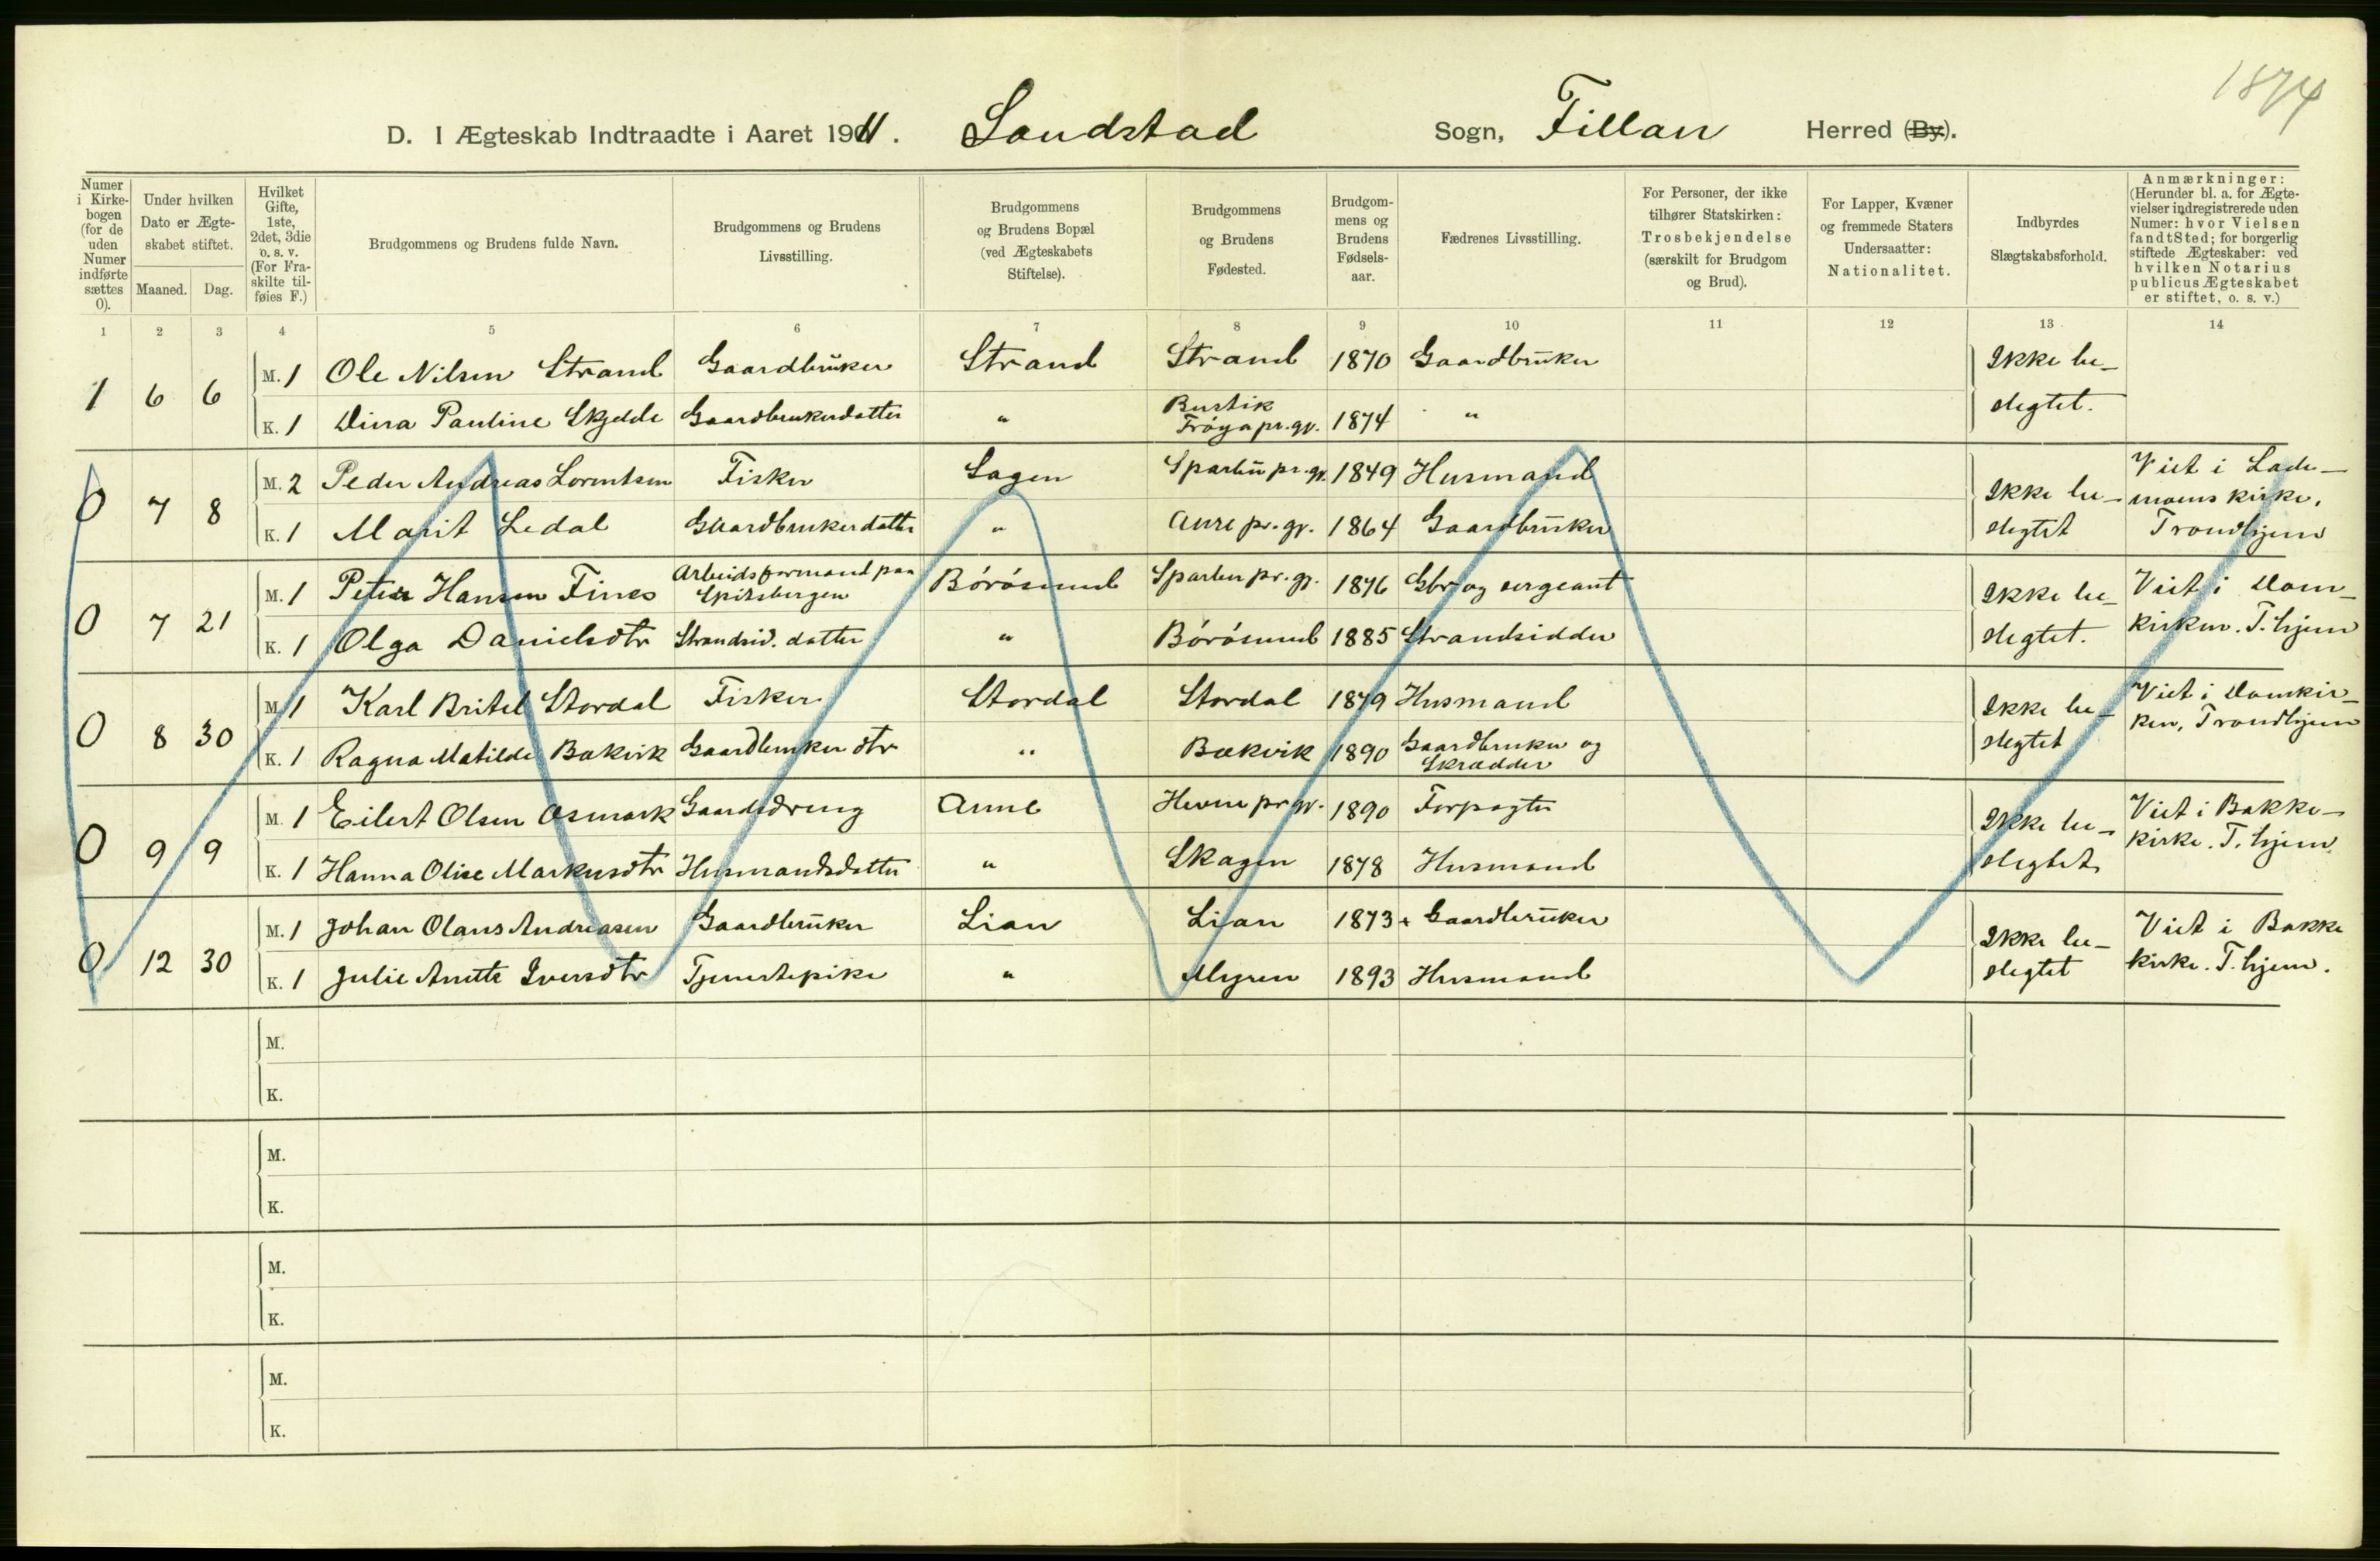 1874
D. I Ægteskab Indtraadte i Aaret 1911. Sandstad Sogn, Fillan Herred (By).
Numer i Kirkebogen (for de uden Numer indførte sættes 0).
Under hvilken Dato er Ægteskabet stiftet.
Maaned. Dag.
Hvilket Gifte, 1ste, 2det, 3die o. s. v. (For Fraskilte tilføies F.)
Brudgommens og Brudens fulde Navn.
Brudgommens og Brudens Livsstilling.
Brudgommens og Brudens Bopæl (ved Ægteskabets Stiftelse).
Brudgommens og Brudens Fødested.
Brudgommens og Brudens Fødselsaar.
Fædrenes Livsstilling.
For Personer, der ikke tilhører Statskirken: Trosbekjendelse (særskilt for Brudgom og Brud).
For Lapper, Kvæner og fremmede Staters Undersaatter: Nationalitet.
Indbyrdes Slægtskabsforhold.
Anmærkninger: (Herunder bl. a. for Ægtevielser indregistrerede uden Numer: hvor Vielsen fandt Sted; for borgerlig stiftede Ægteskaber: ved hvilken Notarius publicus Ægteskabet er stiftet, o. s. v.)
1 2 3 4 5 6 7 8 9 10 11 12 13 14
1 6 6 M. 1 Ole Nilsen Strand Gaardbruker Strand Strand 1870 Gaardbruker Ikke be-
K. 1 Dina Pauline Skjedde Gaardbrukerdatter " Bustik Frøya pr.gj. 1874 " slegtet.
0 7 8 M. 2 Peder Andreas Lorentsen Fisker Lagen Sparbu pr.gj. 1849 Husmand Ikke be- Viet i Lade-
K. 1 Marit Ledal Gaardbrukerdatter " Aure pr.gj. 1864 Gaardbruker slegtet moens kirke, Trondhjem
0 7 21 M. 1 Peter Hansen Fines Arbeidsformand paa Spitsbergen Børøsund Sparbu pr.gj. 1876 Gbr. og sergeant Ikke be- Viet i Dom-
K. 1 Olga Danielsdtr Strandsid. datter " Børøsund 1885 Strandsidder slegtet. kirken. T.hjem
0 8 30 M. 1 Karl Britel Stordal Fisker Stordal Stordal 1879 Husmand Ikke be- Viet i Domkir-
K. 1 Ragna Matilde Bækvik Gaardbruker dtr " Bækvik 1890 Gaardbruker og Skrædder slegtet ken, Trondhjem
0 9 9 M. 1 Eilert Olsen Osmark Gaardsdreng Aune Hevne pr.gj. 1890 Forpagter Ikke be- Viet i Bakke-
K. 1 Hanna Olise Markusdtr Husmandsdatter " Skagen 1878 Husmand slegtet kirke. T.hjem.
0 12 30 M. 1 Johan Olaus Andreasen Gaardbruker Lian Lian 1873 + Gaardbruker Ikke be- Viet i Bakke
K. 1 Julie Anette Iversdtr Tjenestepike " Myren 1893 Husmand slegtet kirke. T.hjem.
M.
K.
M.
K.
M.
K.
M.
K.